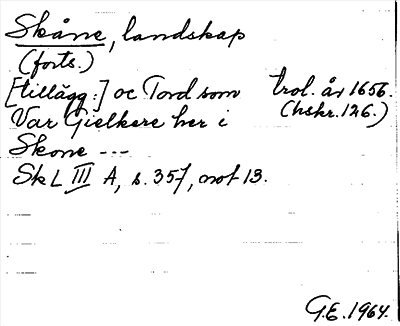 Skåne, landskap
(forts.)
[tillägg:] oc Tord som trol. år 1656.
Var Gielkere her i (hskr. 126.)
Skone ---
SkL III A, s. 357, not 13.
G.E. 1964.